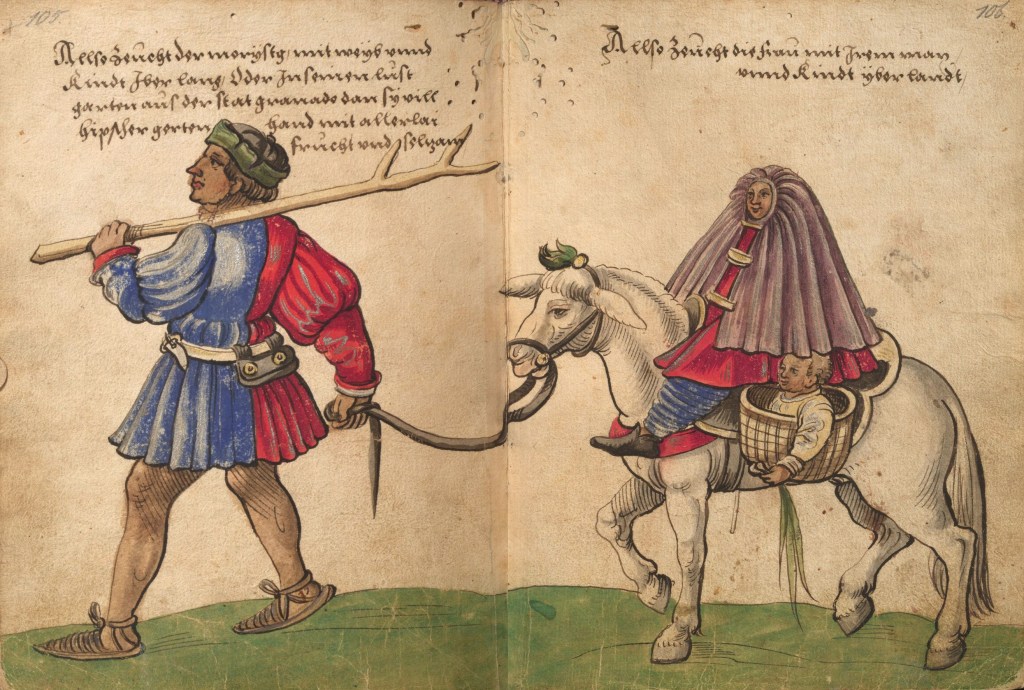 105.
Allso Zeucht der morystg, mit weyb vnnd
Kindt Jber lang, Oder Jn seinen lust
garten aus der stat granado dan sy vill
hipscher gerten hand mit allerlai
frucht vnd selzam
106.
Allso Zeucht die frau mit Jrem man
vnnd Kindt yber landt,